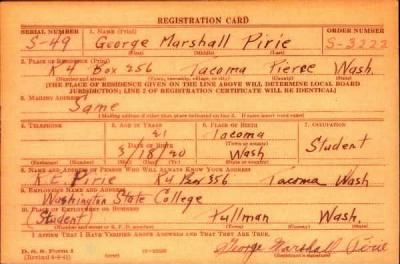 REGISTRATION CARD
SERIAL NUMBER 1. NAME (Print) ORDER NUMBER
S-49 George Marshall Pirie S-3222
(First) (Middle) (Last)
2. PLACE OF RESIDENCE (Print)
R 4 Box 256 Tacoma Pierce Wash.
(Number and street) (Town, township, village, or city) (County) (State)
[THE PLACE OF RESIDENCE GIVEN ON THE LINE ABOVE WILL DETERMINE LOCAL BOARD
JURISDICTION; LINE 2 OF REGISTRATION CERTIFICATE WILL BE IDENTICAL]
3. MAILING ADDRESS
Same
[Mailing address if other than place indicated on line 2. If same insert word same]
4. TELEPHONE 5. AGE IN YEARS 6. PLACE OF BIRTH 7. OCCUPATION
21 Tacoma
DATE OF BIRTH (Town or county) Student
3 18 20 Wash
(Exchange) (Number) (Mo.) (Day) (Yr.) (State or country)
8. NAME AND ADDRESS OF PERSON WHO WILL ALWAYS KNOW YOUR ADDRESS
Pirie R4 Box 356 Tacoma Wash
9. EMPLOYER'S NAME AND ADDRESS
Washington State College
10. PLACE OF EMPLOYMENT OR BUSINESS
(Student) Pullman Wash.
(Number and street or R. F. D. number) (Town) (County) (State)
I AFFIRM THAT I HAVE VERIFIED ABOVE ANSWERS AND THAT THEY ARE TRUE.
D. S. S. Form 1
George Marshall Pirie